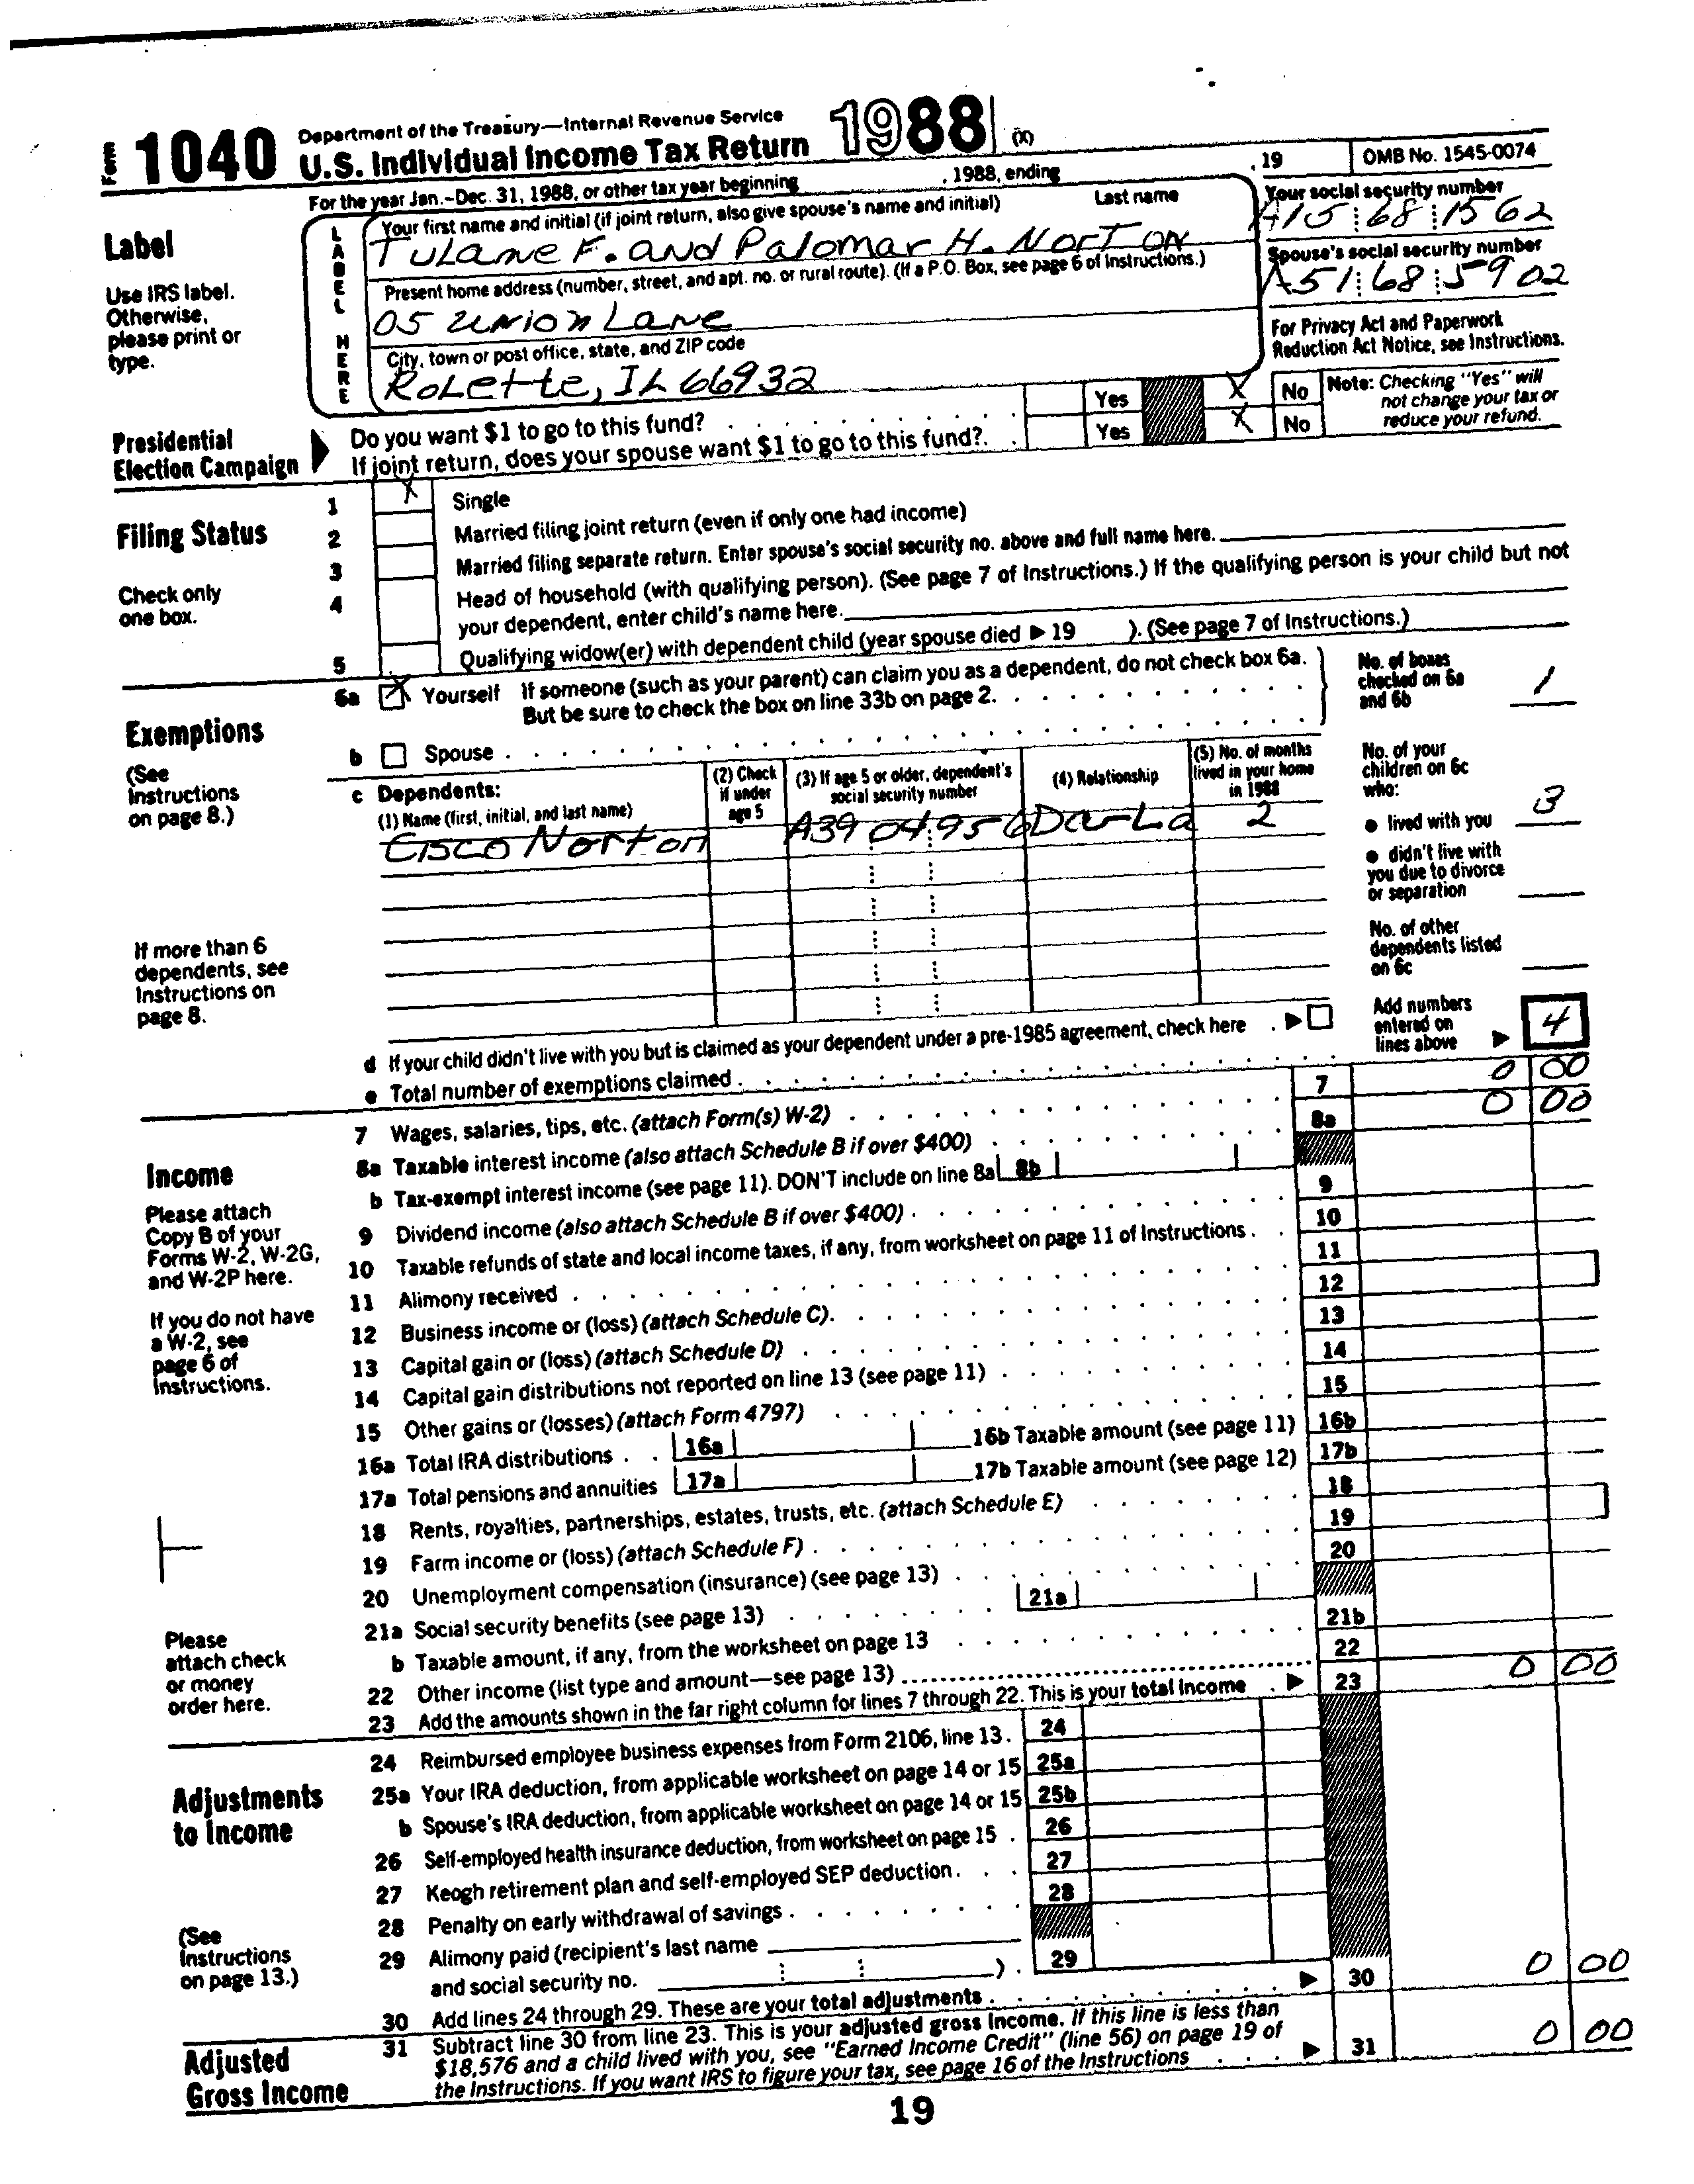 Form 1040 Department of the Treasury—Internal Revenue Service
U.S. Individual Income Tax Return 1988 (X)
For the year Jan.–Dec. 31, 1988, or other tax year beginning , 1988, ending , 19 OMB No. 1545-0074
Label
Use IRS label.
Otherwise,
please print or
type.
LABEL HERE
Your first name and initial (if joint return, also give spouse's name and initial) Last name
Tulane F. and Palomar H. Norton
Your social security number
A15 68 1562
Present home address (number, street, and apt. no. or rural route). (If a P.O. Box, see page 6 of Instructions.)
05 Union Lane
Spouse's social security number
A51 68 5902
City, town or post office, state, and ZIP code
Rolette, IL 66932
For Privacy Act and Paperwork
Reduction Act Notice, see Instructions.
Presidential
Election Campaign
Do you want $1 to go to this fund? Yes X No
If joint return, does your spouse want $1 to go to this fund?. Yes X No
Note: Checking "Yes" will
not change your tax or
reduce your refund.
Filing Status
Check only
one box.
1 X Single
2 Married filing joint return (even if only one had income)
3 Married filing separate return. Enter spouse's social security no. above and full name here.
4 Head of household (with qualifying person). (See page 7 of Instructions.) If the qualifying person is your child but not
your dependent, enter child's name here.
5 Qualifying widow(er) with dependent child (year spouse died ▶ 19 ). (See page 7 of Instructions.)
Exemptions
(See
Instructions
on page 8.)
If more than 6
dependents, see
Instructions on
page 8.
6a X Yourself If someone (such as your parent) can claim you as a dependent, do not check box 6a.
But be sure to check the box on line 33b on page 2.
b Spouse
No. of boxes
checked on 6a
and 6b 1
c Dependents:
(1) Name (first, initial, and last name)
(2) Check
if under
age 5
(3) If age 5 or older, dependent's
social security number
(4) Relationship
(5) No. of months
lived in your home
in 1988
Cisco Norton A39 04 956 Da-La 2
No. of your
children on 6c
who:
● lived with you 3
● didn't live with
you due to divorce
or separation
No. of other
dependents listed
on 6c
d If your child didn't live with you but is claimed as your dependent under a pre-1985 agreement, check here ▶
e Total number of exemptions claimed
Add numbers
entered on
lines above ▶ 4
Income
Please attach
Copy B of your
Forms W-2, W-2G,
and W-2P here.
If you do not have
a W-2, see
page 6 of
Instructions.
Please
attach check
or money
order here.
7 Wages, salaries, tips, etc. (attach Form(s) W-2) 7 0 00
8a Taxable interest income (also attach Schedule B if over $400) 8a 0 00
b Tax-exempt interest income (see page 11). DON'T include on line 8a 8b
9 Dividend income (also attach Schedule B if over $400) 9
10 Taxable refunds of state and local income taxes, if any, from worksheet on page 11 of Instructions 10
11 Alimony received 11
12 Business income or (loss) (attach Schedule C) 12
13 Capital gain or (loss) (attach Schedule D) 13
14 Capital gain distributions not reported on line 13 (see page 11) 14
15 Other gains or (losses) (attach Form 4797) 15
16a Total IRA distributions 16a 16b Taxable amount (see page 11) 16b
17a Total pensions and annuities 17a 17b Taxable amount (see page 12) 17b
18 Rents, royalties, partnerships, estates, trusts, etc. (attach Schedule E) 18
19 Farm income or (loss) (attach Schedule F) 19
20 Unemployment compensation (insurance) (see page 13) 20
21a Social security benefits (see page 13) 21a
b Taxable amount, if any, from the worksheet on page 13 21b
22 Other income (list type and amount—see page 13) 22
23 Add the amounts shown in the far right column for lines 7 through 22. This is your total income ▶ 23 0 00
Adjustments
to Income
(See
Instructions
on page 13.)
24 Reimbursed employee business expenses from Form 2106, line 13. 24
25a Your IRA deduction, from applicable worksheet on page 14 or 15 25a
b Spouse's IRA deduction, from applicable worksheet on page 14 or 15 25b
26 Self-employed health insurance deduction, from worksheet on page 15 26
27 Keogh retirement plan and self-employed SEP deduction 27
28 Penalty on early withdrawal of savings 28
29 Alimony paid (recipient's last name
and social security no. ). 29
30 Add lines 24 through 29. These are your total adjustments ▶ 30 0 00
Adjusted
Gross Income
31 Subtract line 30 from line 23. This is your adjusted gross income. If this line is less than
$18,576 and a child lived with you, see "Earned Income Credit" (line 56) on page 19 of
the Instructions. If you want IRS to figure your tax, see page 16 of the Instructions ▶ 31 0 00
19